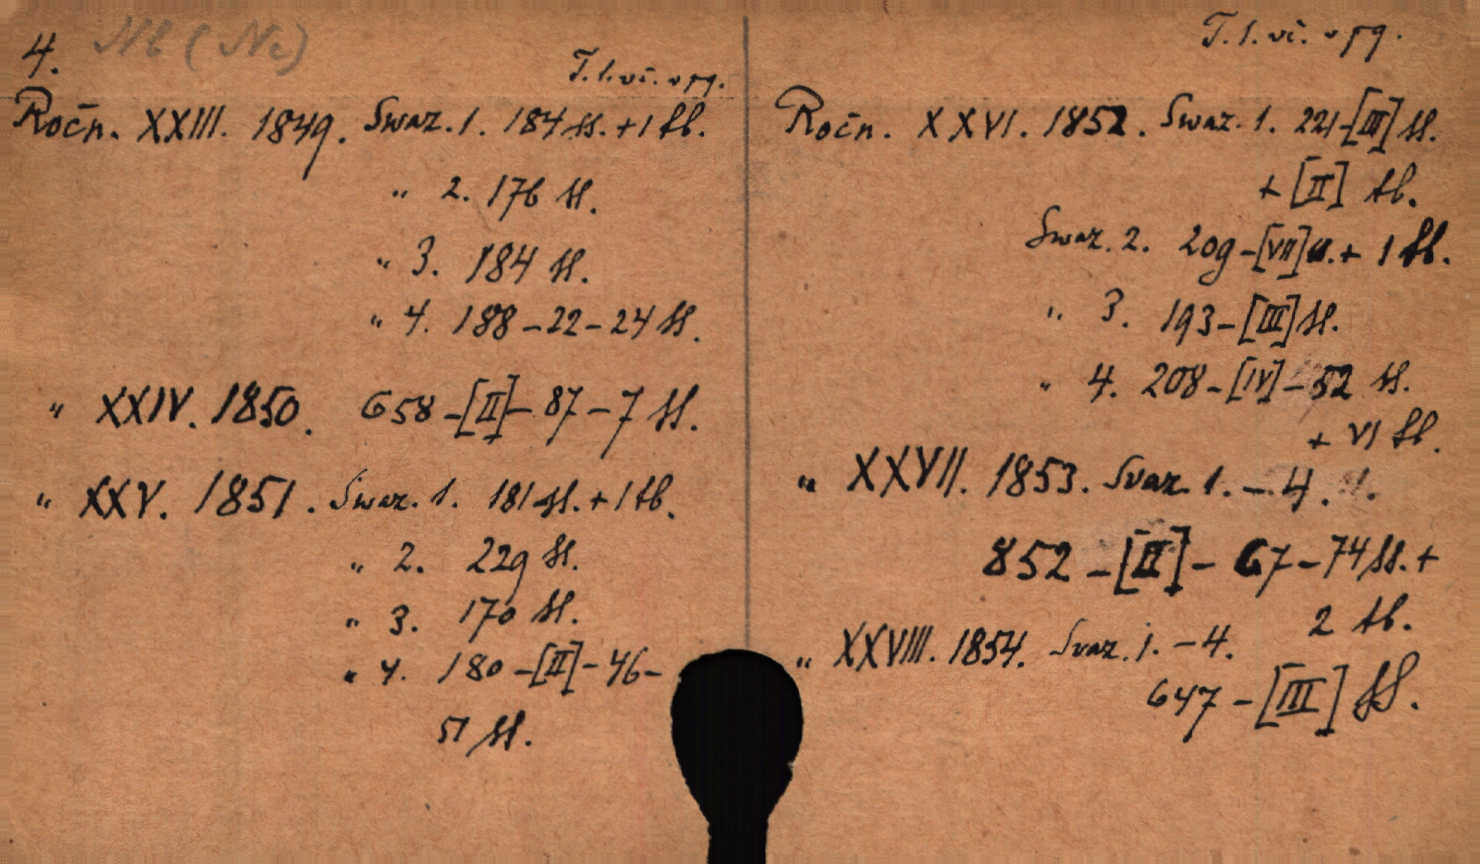 4. Nb (Nr)
Ročn. XXIII. 1849. Swaz. 1. 184 ss. + 1 tb.
" 2. 176 ss.
" 3. 184 ss.
" 4. 188 – 22 – 24 ss.
" XXIV. 1850. 658 – [II] – 87 – 7 ss.
" XXV. 1851. Swaz. 1. 181 ss. + 1 tb.
" 2. 229 ss.
" 3. 170 ss.
" 4. 180 – [II] – 46 –
51 ss.
Ročn. XXVI. 1852. Swaz. 1. 221 – [III] ss.
+ [II] tb.
Swaz. 2. 209 – [VII] ss. + 1 tb.
" 3. 193 – [III] ss.
" 4. 208 – [IV] – 52 ss.
+ VI tb.
" XXVII. 1853. Svaz. 1. – 4.
852 – [II] – 67 – 74 ss. +
2 tb.
" XXVIII. 1854. Svaz. 1. – 4.
647 – [III] ss.